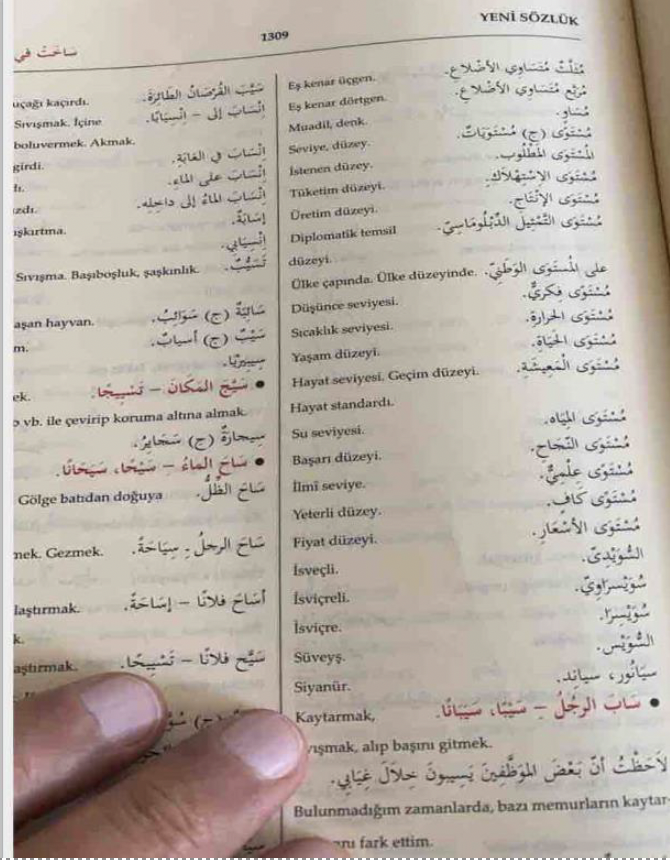 YENİ SÖZLÜK
1309
سَاخَتْ في
مُثَلَّثٌ مُتَسَاوِي الأَضْلاعِ. Eş kenar üçgen.
مُرَبَّع مُتَسَاوِي الأَضْلاعِ. Eş kenar dörtgen.
مُسَاوٍ. Muadil, denk.
مُسْتَوَى (ج) مُسْتَوَيَاتٌ. Seviye, düzey.
المُسْتَوَى المَطْلُوب. İstenen düzey.
مُسْتَوَى الاِسْتِهْلاَكِ. Tüketim düzeyi.
مُسْتَوَى الإِنْتَاجِ. Üretim düzeyi.
مُسْتَوَى التَّمْثِيلِ الدِّبْلُومَاسِيِّ. Diplomatik temsil
düzeyi.
على المُسْتَوَى الوَطَنِيِّ. Ülke çapında. Ülke düzeyinde.
مُسْتَوَى فِكْرِيٌّ. Düşünce seviyesi.
مُسْتَوَى الحَرارَةِ. Sıcaklık seviyesi.
مُسْتَوَى الحَيَاةِ. Yaşam düzeyi.
مُسْتَوَى الْمَعِيشَةِ. Hayat seviyesi. Geçim düzeyi.
Hayat standardı.
مُسْتَوَى المِيَاه. Su seviyesi.
مُسْتَوَى النَّجَاحِ. Başarı düzeyi.
مُسْتَوَى عِلْمِيٌّ. İlmî seviye.
مُسْتَوَى كَافٍ. Yeterli düzey.
مُسْتَوَى الأَسْعَارِ. Fiyat düzeyi.
السُّوَيْدِيّ. İsveçli.
سُوَيْسرَاوِيٌّ. İsviçreli.
سُوَيْسِرَا. İsviçre.
السُّوَيْس. Süveyş.
سيَانُور، سيانِد. Siyanür.
● سَابَ الرجُلُ – سَيْبًا، سَيَبَانًا. Kaytarmak,
ışmak, alıp başını gitmek.
لاَحَظْتُ أنّ بَعْضَ المُوَظَّفِينَ يَسِيبونَ خِلاَلَ غِيَابِي.
Bulunmadığım zamanlarda, bazı memurların kaytar-
fark ettim.
سَيَّبَ القُرْصَانُ الطَّائِرَةَ. uçağı kaçırdı.
اِنْسَابَ إلى – اِنْسِيَابًا. Sıvışmak. İçine
boluvermek. Akmak.
اِنْسَابَ في الغَابَةِ. girdi.
اِنْسَابَ على المَاءِ. dı.
اِنْسَابَ المَاءُ إلى دَاخِلِه. zdı.
إِسَابَةٌ. şkırtma.
اِنْسِيَابِي.
تَسَيُّبٌ. Sıvışma. Başıboşluk, şaşkınlık.
سَائِبَةٌ (ج) سَوَائِبُ. aşan hayvan.
سَيْبٌ (ج) أسيابٌ. m.
سيبيريَا.
● سَيَّجَ المَكَانَ – تَسْيِيجًا. ek.
vb. ile çevirip koruma altına almak.
سيجارَةٌ (ج) سَجَايرُ.
● سَاحَ الماءُ – سَيْحًا، سَيَحَانًا.
سَاحَ الظِّلُّ. Gölge batıdan doğuya
سَاحَ الرجلُ ـِ سِيَاحَةً. mek. Gezmek.
أسَاحَ فلانًا – إسَاحَةً. laştırmak.
k.
سَيَّح فلانًا – تَسْيِيحًا. aştırmak.